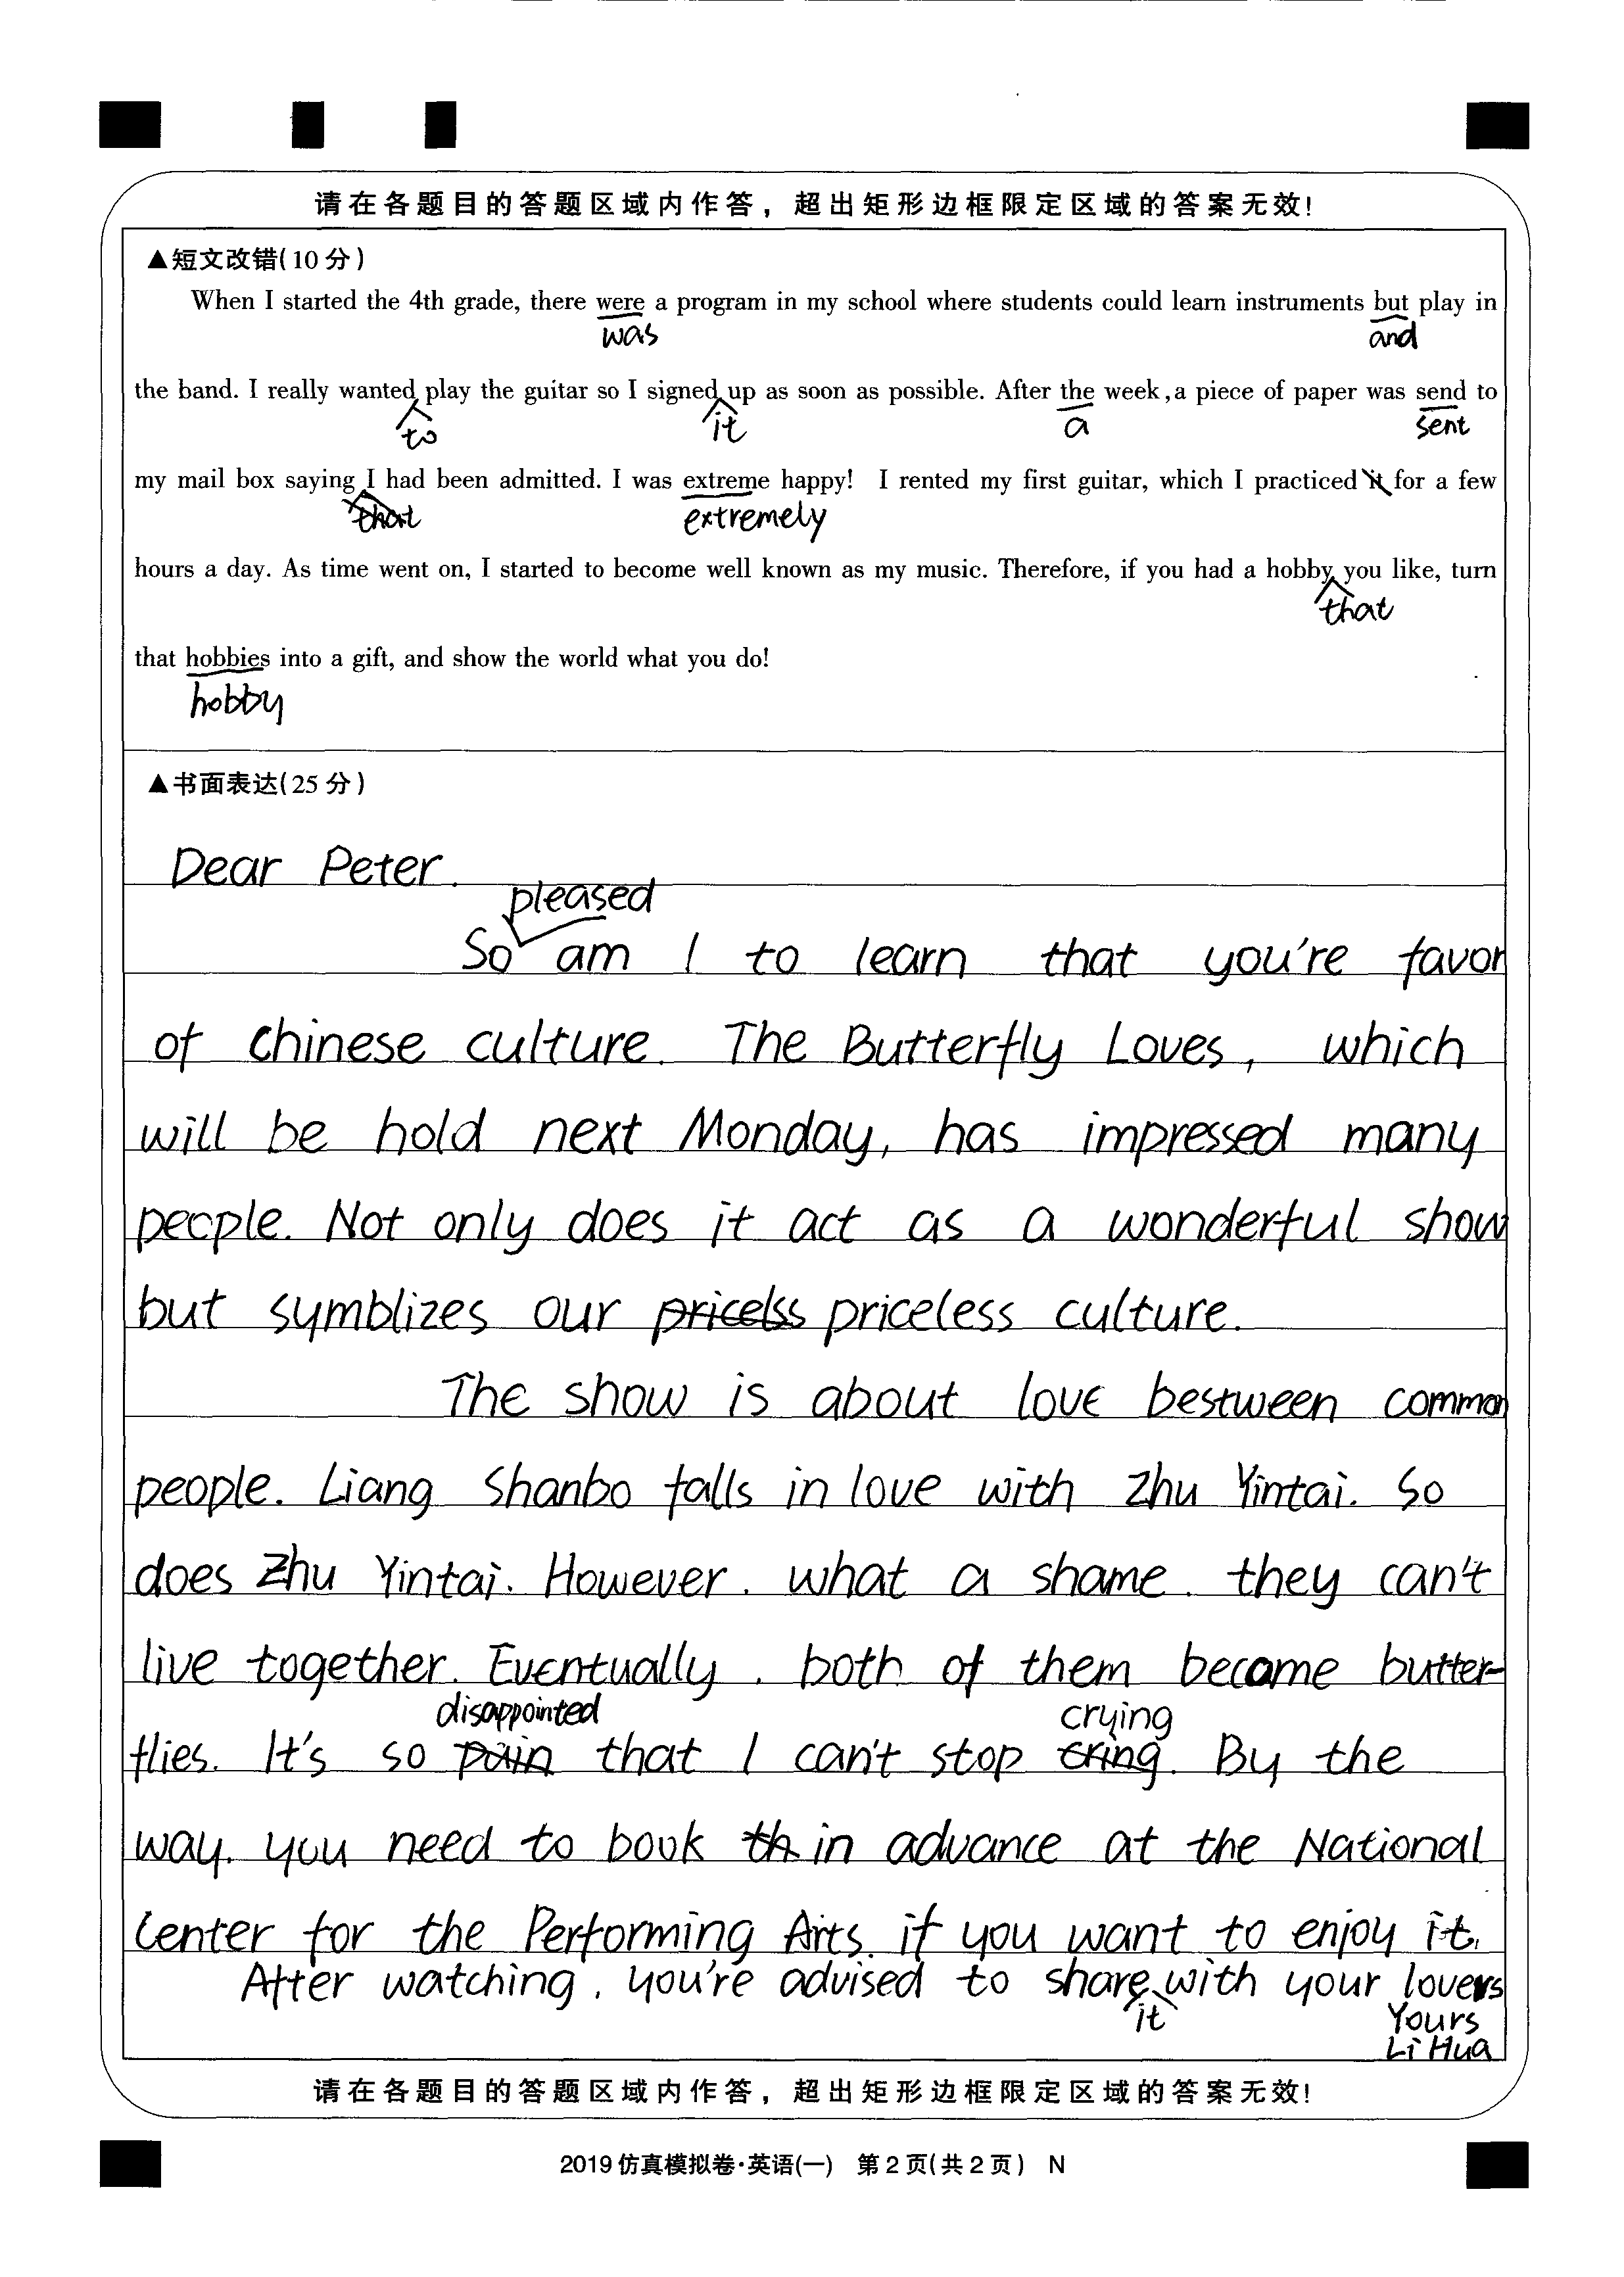 请在各题目的答题区域内作答，超出矩形边框限定区域的答案无效!
▲短文改错(10分)
When I started the 4th grade, there were a program in my school where students could learn instruments but play in
was and
the band. I really wanted play the guitar so I signed up as soon as possible. After the week, a piece of paper was send to
to it a sent
my mail box saying I had been admitted. I was extreme happy! I rented my first guitar, which I practiced it for a few
that extremely
hours a day. As time went on, I started to become well known as my music. Therefore, if you had a hobby you like, turn
that
that hobbies into a gift, and show the world what you do!
hobby
▲书面表达(25分)
Dear Peter.
pleased
So am I to learn that you're favor
of Chinese culture. The Butterfly Loves, which
will be hold next Monday, has impressed many
people. Not only does it act as a wonderful show
but symblizes our pricelss priceless culture.
The show is about love bestween common
people. Liang Shanbo falls in love with Zhu Yintai. So
does Zhu Yintai. However. what a shame. they can't
live together. Eventually. both of them become butter-
disappointed crying
flies. It's so pain that I can't stop cring. By the
way. you need to book th in advance at the National
Center for the Performing Arts. if you want to enjoy it.
After watching. you're advised to share with your lovers
it Yours
Li Hua
请在各题目的答题区域内作答，超出矩形边框限定区域的答案无效!
2019仿真模拟卷·英语(一) 第2页(共2页) N